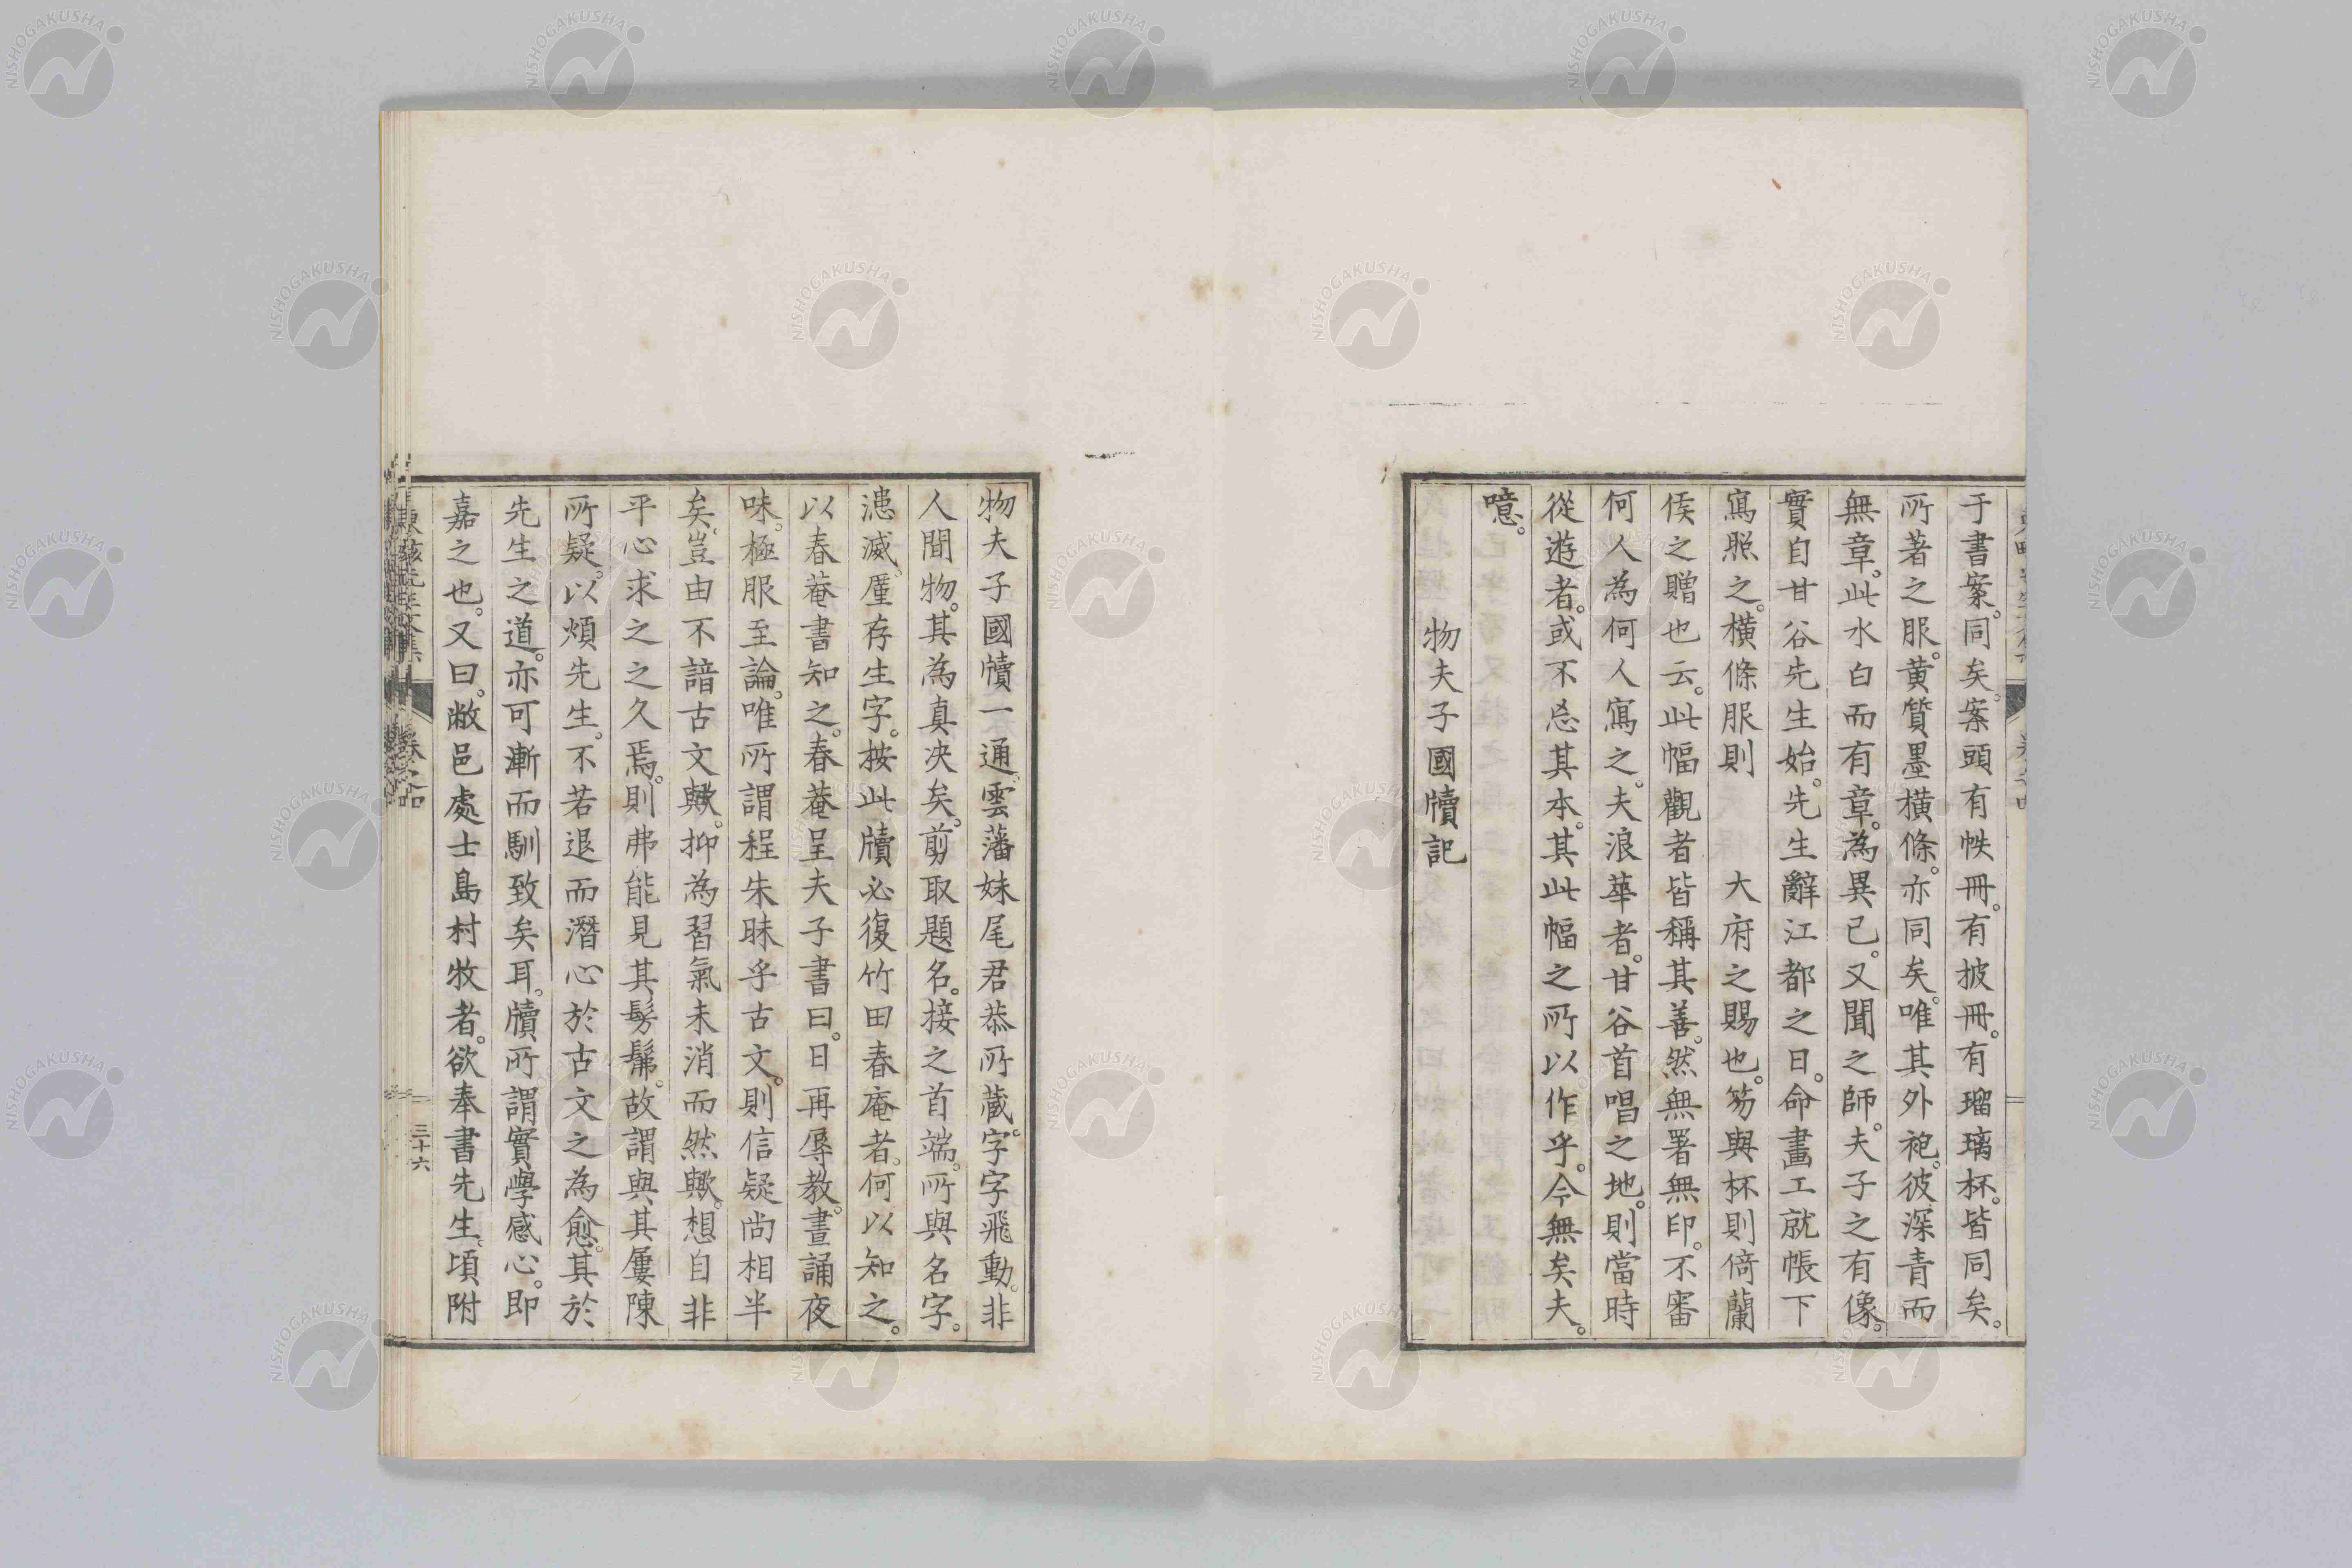 于書案。同矣。案頭有帙冊。有披冊。有瑠璃杯。皆同矣。
所著之服。黄質墨橫條。亦同矣。唯其外袍。彼深青而
無章。此水白而有章。為異已。又聞之師。夫子之有像。
實自甘谷先生始。先生辭江都之日。命畫工就帳下
寫照之。橫條服則　大府之賜也。笏與杯則倚蘭
侯之贈也云。此幅觀者皆稱其善。然無署無印。不審
何人為何人寫之。夫浪華者。甘谷首唱之地。則當時
從遊者。或不忘其本。其此幅之所以作乎。今無矣夫。
噫。
物夫子國牘記
物夫子國牘一通。雲藩妹尾君恭所藏。字字飛動。非
人間物。其為真決矣。剪取題名。接之首端。所與名字。
漶滅。厪存生字。按此牘必復竹田春庵者。何以知之。
以春菴書知之。春菴呈夫子書曰。日再辱教。晝誦夜
味。極服至論。唯所謂程朱昧乎古文。則信疑尚相半
矣。豈由不諳古文歟。抑為習氣未消而然歟。想自非
平心求之之久焉。則弗能見其髣髴。故謂與其屢陳
所疑。以煩先生。不若退而潛心於古文之為愈。其於
先生之道。亦可漸而馴致矣耳。牘所謂實學感心。即
嘉之也。又曰。敝邑處士島村牧者。欲奉書先生。頃附
三十六